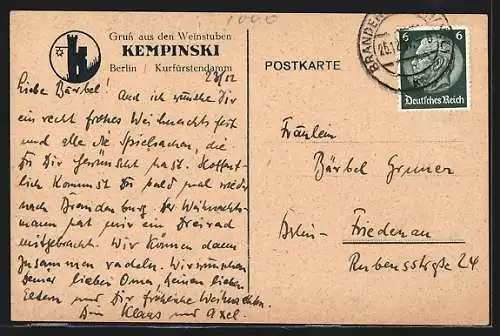 1000
Gruß aus den Weinstuben
KEMPINSKI
Berlin / Kurfürstendamm
POSTKARTE
BRANDEN
25.12
6 6
Deutsches Reich
23/12
Liebe Bärbel!
Auch ich wünsche Dir
ein recht frohes Weihnachtsfest
und alle die Spielsachen, die
Du Dir gewünscht hast. Hoffent-
lich kommst Du bald mal wieder
nach Brandenburg. Der Weihnachts-
mann hat mir ein Dreirad
mitgebracht. Wir können dann
zusammen radeln. Wir wünschen
Deiner lieben Oma, Deinen lieben
Eltern und Dir fröhliche Weihnachten.
Dein Klaus und Axel.
Fräulein
Bärbel Gruner
Berlin-Friedenau
Rubensstraße 24